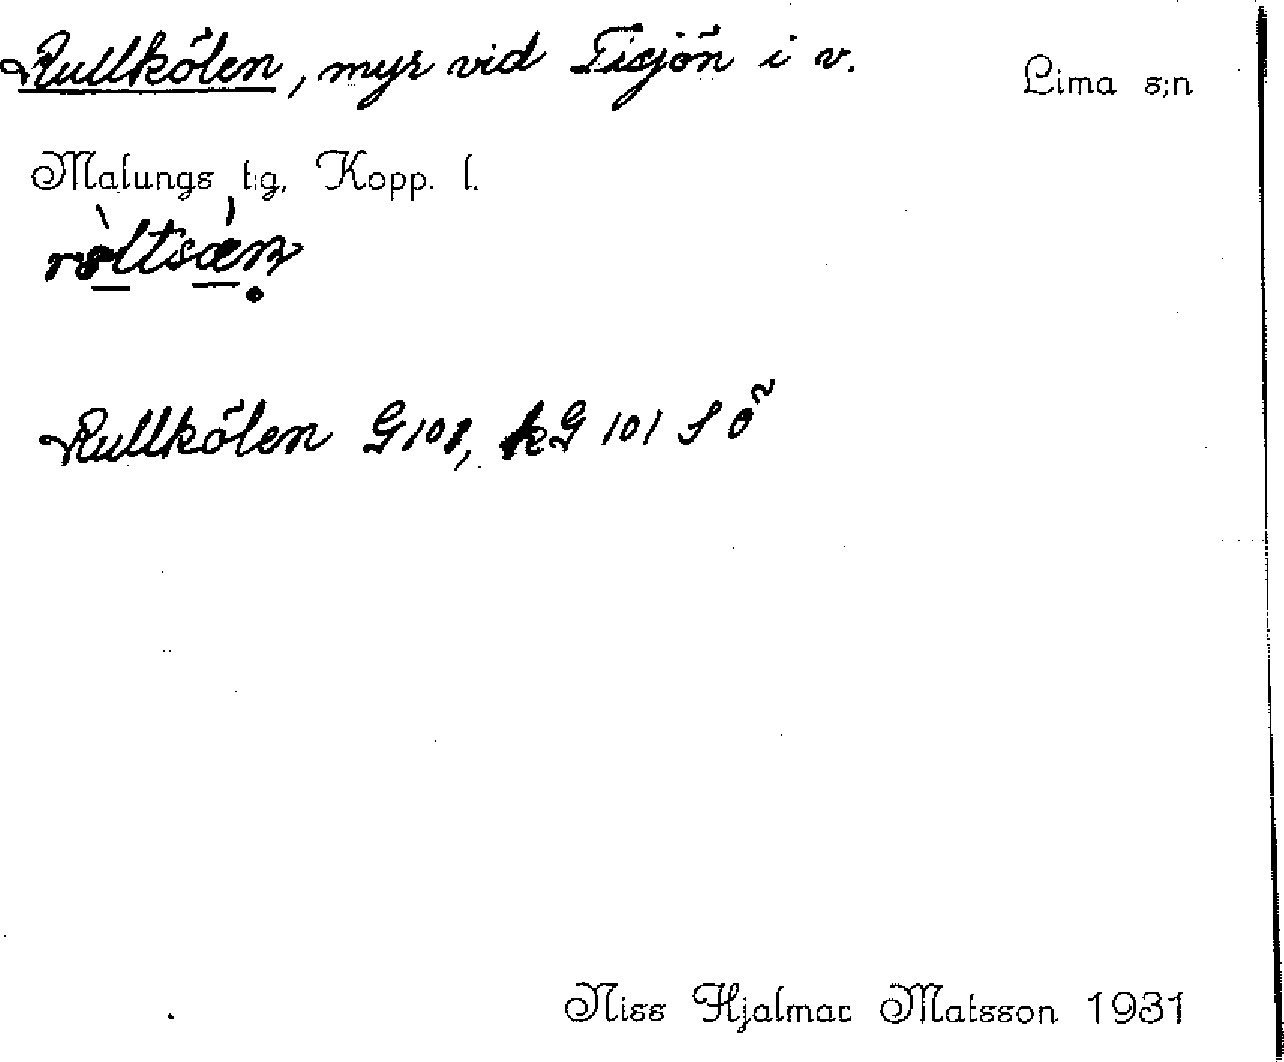 Rullkölen, myr vid Tisjön i v. Lima s:n
Malungs t:g, Kopp. l.
Rullkölen G108, kG 101 S ö
Niss Hjalmar Matsson 1931